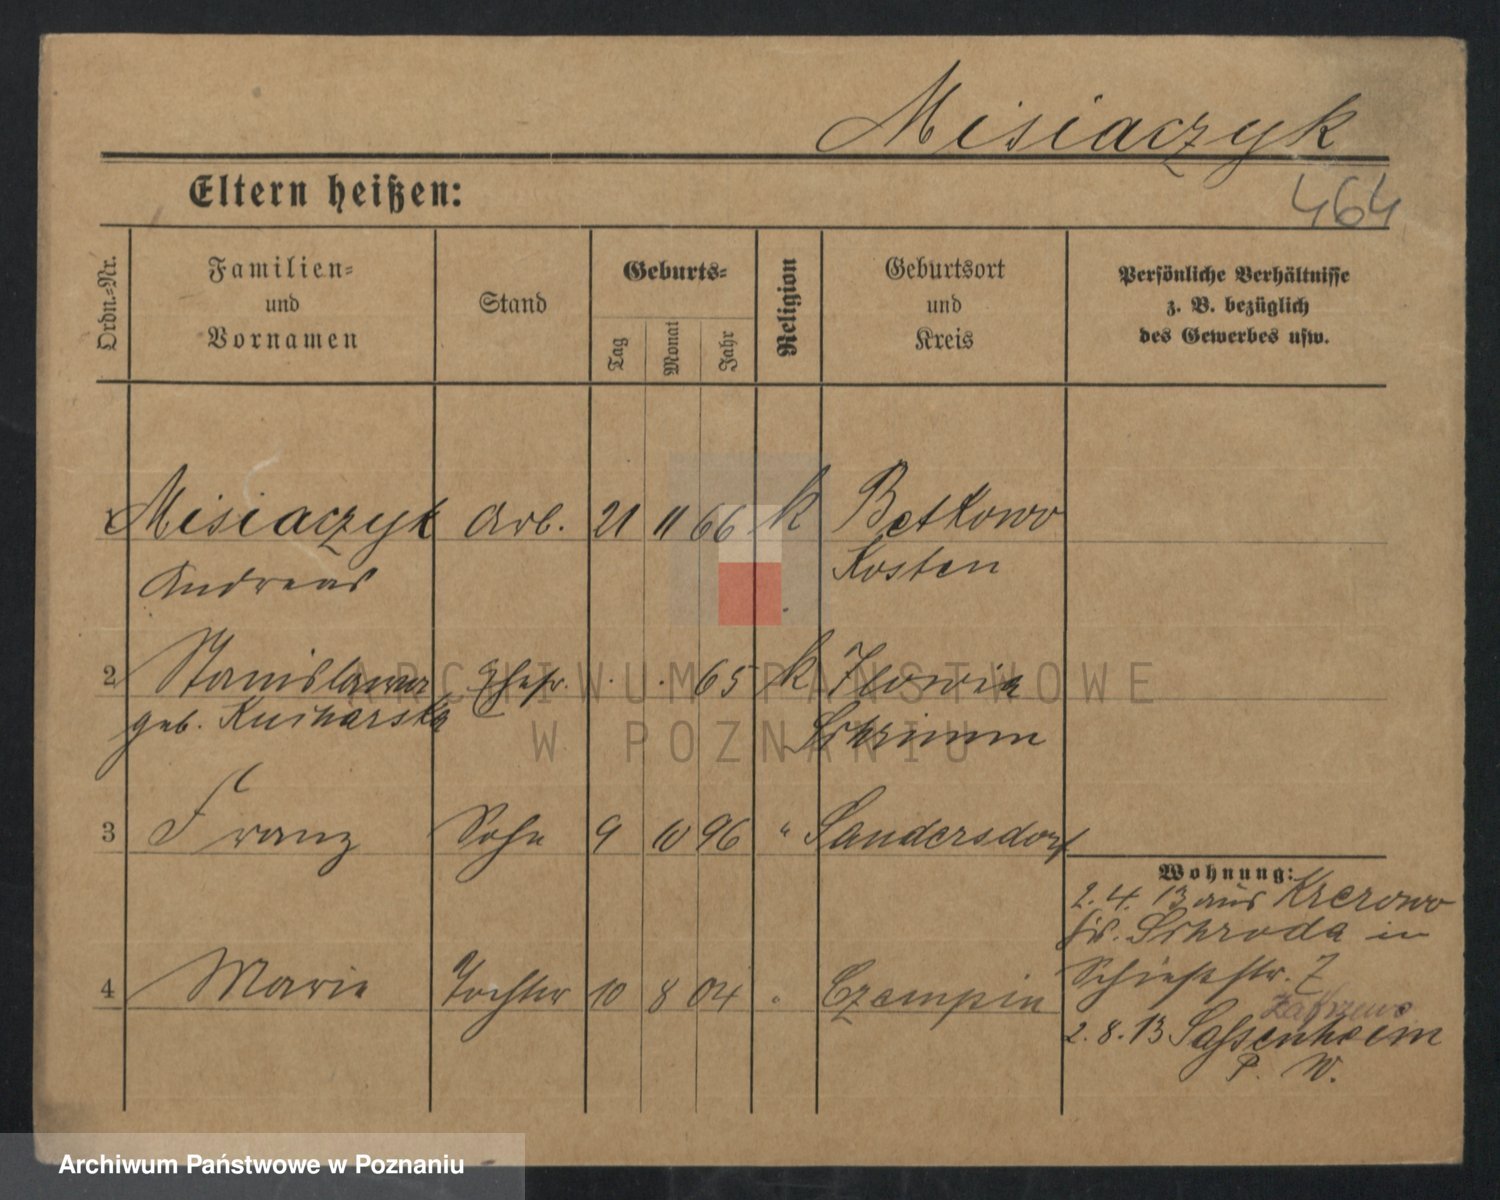 Misiaczyk
464
Eltern heißen:
Ordn.-Nr.
Familien-
und
Vornamen
Stand
Geburts-
Tag
Monat
Jahr
Religion
Geburtsort
und
Kreis
Persönliche Verhältnisse
z. B. bezüglich
des Gewerbes usw.
1 Misiaczyk Arb. 21 11 66 k Betkowo
Andreas Kosten
2 Stanislawa Ehefr. . . 65 k Ilowie
geb. Kucharska Schrimm
3 Franz Sohn 9 10 96 " Sandersdorf
Wohnung:
2. 4. 13 aus Krerowo
Kr. Schroda in
Schießstr. 7
4 Marie Tochter 10 8 04 " Czempin
Zakrzewo
2. 8. 13 Sassenheim
P. W.
ARCHIWUM PAŃSTWOWE
W POZNANIU
Archiwum Państwowe w Poznaniu